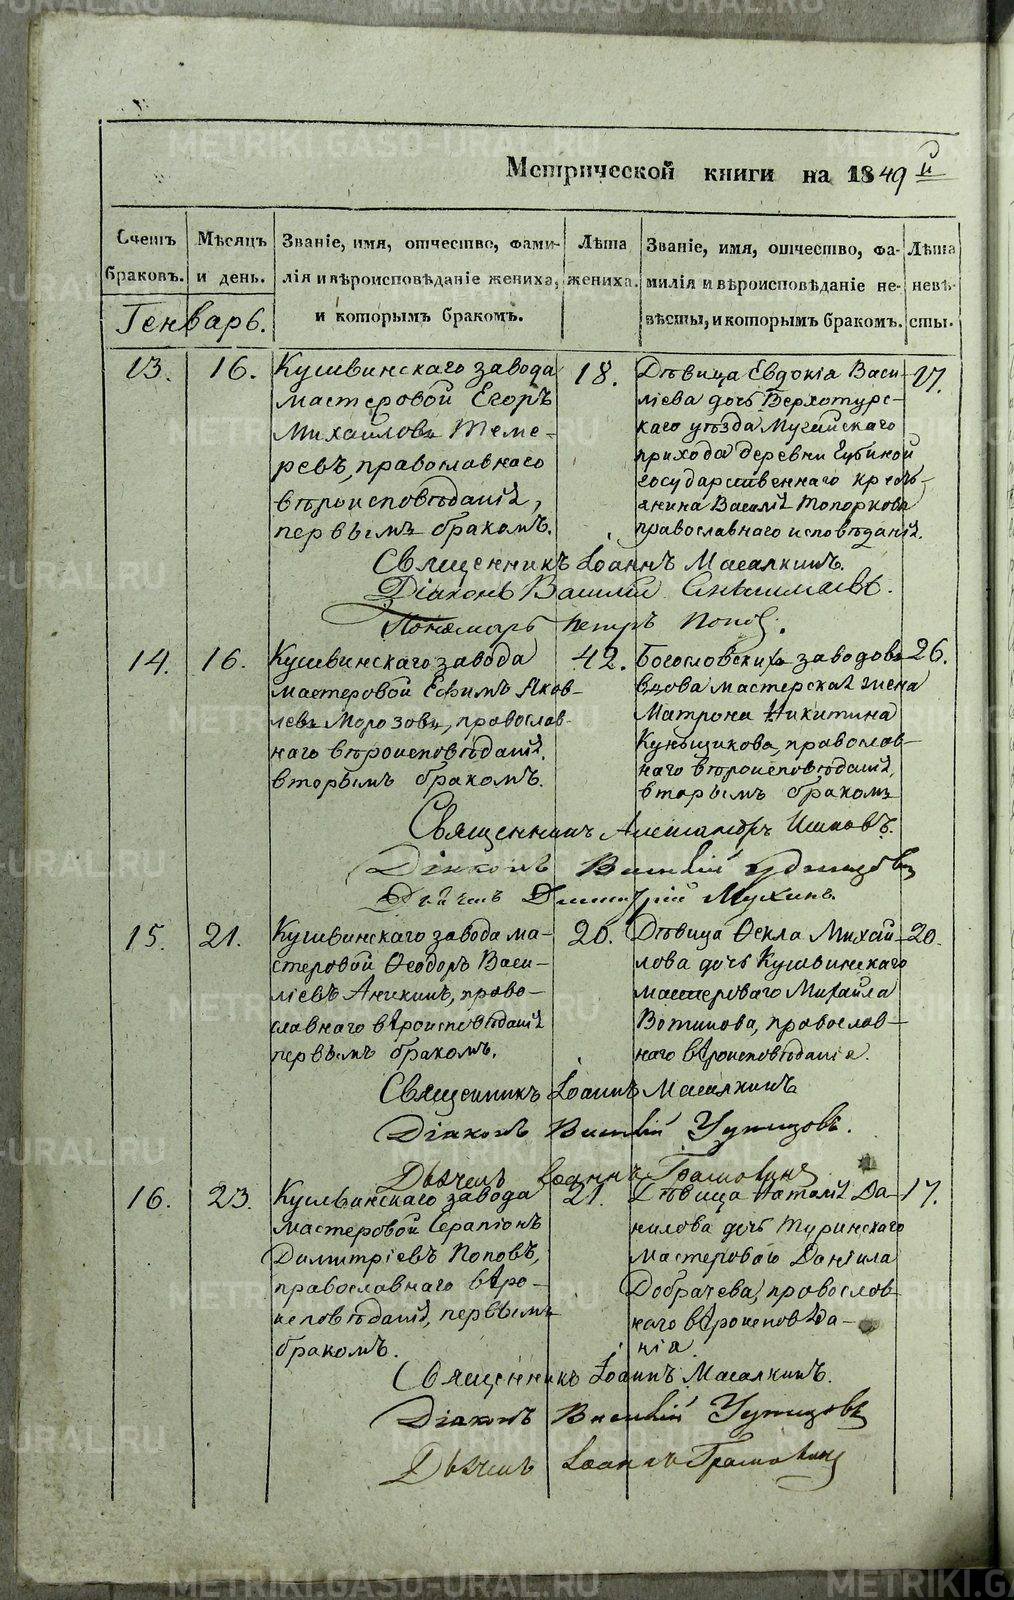 METRIKI.GASO-URAL.RU
Метрической книги на 1849 й
Счетъ браковъ.
Мѣсяцъ и день.
Званіе, имя, отчество, фами-
лія и вѣроисповѣданіе жениха,
и которымъ бракомъ.
Лѣта жениха.
Званіе, имя, отчество, фа-
милія и вѣроисповѣданіе не-
вѣсты, и которымъ бракомъ.
Лѣта невѣ-
сты.
Генварь.
13.
16.
Кушвинскаго завода
мастеровой Егоръ
Михайловъ Теме-
ревъ, православнаго
вѣроисповѣданія,
первымъ бракомъ.
18.
Дѣвица Евдокія Васи-
лiева дочь Верхотурс-
каго уѣзда Мугайскаго
прихода деревни Губиной
государственнаго крестъ-
янина Василія Топоркова
православнаго исповѣданія.
17.
Священникъ Іоаннъ Масалкинъ.
Діаконъ Василій
Пономарь Петръ Поповъ.
14.
16.
Кушвинскаго завода
мастеровой Ефимъ Яков-
левъ Морозовъ, православ-
наго вѣроисповѣданія,
вторымъ бракомъ.
42.
Богословскихъ заводовъ
вдова мастерская жена
Матрона Никитина
Кунщикова, православ-
наго вѣроисповѣданія,
вторымъ бракомъ
26.
Священникъ Александръ
Діаконъ Василій
Дьячекъ Димитрій Мухинъ.
15.
21.
Кушвинскаго завода ма-
стеровой Ѳеодоръ Васи-
ліевъ Аникинъ, право-
славнаго вѣроисповѣданія
первымъ бракомъ.
20.
Дѣвица Ѳекла Михай-
лова дочь Кушвинскаго
мастероваго Михаила
Вотинова, православ-
наго вѣроисповѣданія.
20.
Священникъ Іоаннъ Масалкинъ
Діаконъ Василій
Дьячекъ Іоаннъ
16.
23.
Кушвинскаго завода
мастеровой Серапіонъ
Димитріевъ Поповъ,
православнаго вѣро-
исповѣданія, первымъ
бракомъ.
21.
Дѣвица Наталія Да-
нилова дочь Туринскаго
мастероваго Даніила
Добрачева, православ-
наго вѣроисповѣда-
нія.
17.
Священникъ Іоаннъ Масалкинъ.
Діаконъ Василій
Дьячекъ Іоаннъ